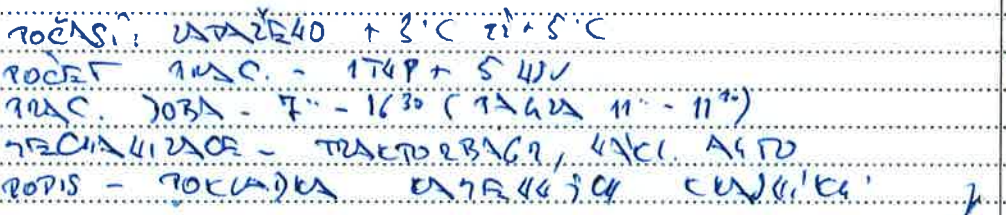 POČASÍ: ZATAŽENO + 3°C až + 5°C
POČET PRAC. - 1THP + 5
PRAC. DOBA - 7⁰⁰ - 16³⁰ (PAUZA 11⁰⁰ - 11³⁰)
MECHANIZACE - TRAKTORBAGR, NÁKL. AUTO
POPIS - POKLÁDKA KAMENNÝCH KRAJNÍKŮ